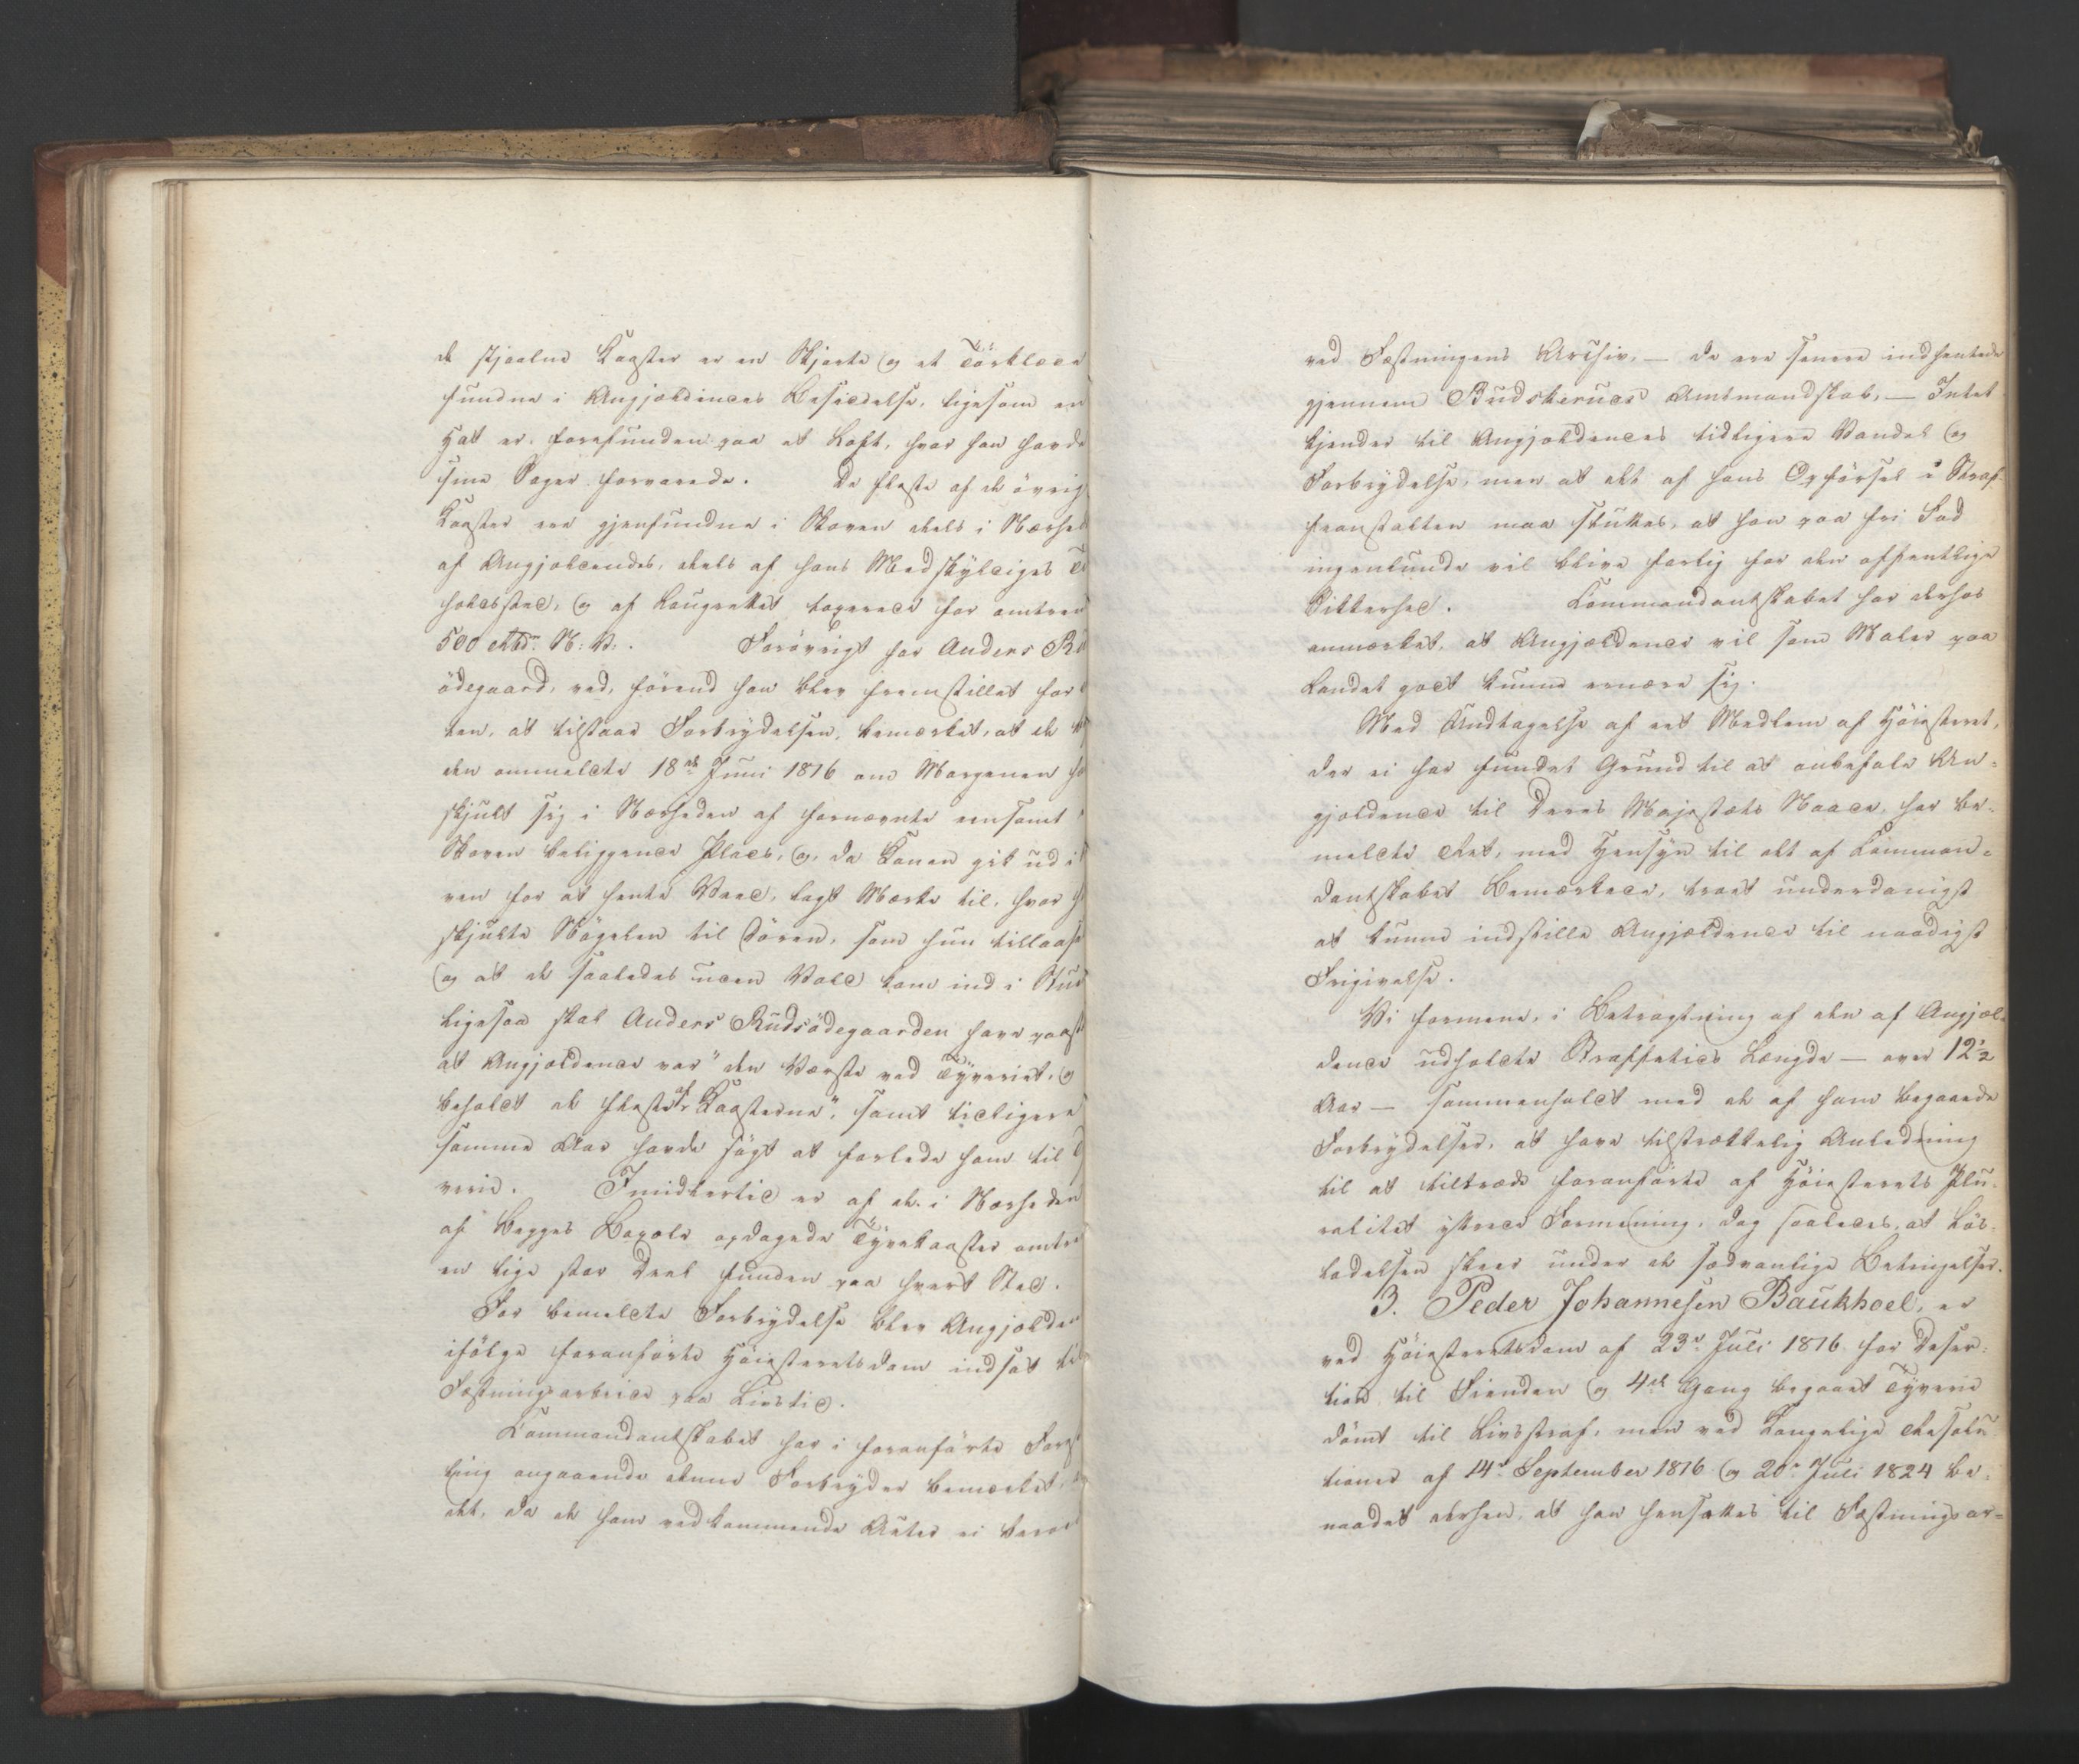 de stjaalne Koster er en Skjorte og et Törklæde
fundne i Angjældendes Besiddelse, ligesom en
Hat er forefunden paa et Loft, hvor han havde
sine Sager forvarede. De fleste af de övrig
Koster ere gjenfundne i Skoven deels i Nærhed
af Angjældendes, deels af hans Medskyldiges
holdssted, og af Laugrettet taxerede for omtren
500 Rbdr. N: V:. Forövrigt har Anders R
ödegaard, ved, förend han blev fremstillet for
ten, at tilstaae Forbrydelsen, bemærket, at de
den ommeldte 18de Juni 1816 om Morgenen
skjult sig i Nærheden af fornævnte eensomt
Skoven beliggende Plads, og, da Konen gik ud i
ven for at hente Veed, lagt Mærke til, hvor
skjulte Nögelen til Dören, som hun tillaase
og at de saaledes uden Vold kom ind i Stue
ligesaa skal Anders Rudsödegaarden have paast
at Angjældende var "den Værste ved Tyveriet, og
beholdt de fleste af Kosterne", samt tidligere
samme Aar havde sögt at forlede ham til
verie. Imidlertid er af de i Nærheden
af Begges Bopæle opdagede Tyvekoster omtre
en lige stor Deel funden paa hvert Sted.
For bemeldte Forbrydelse blev Angjælden
ifölge foranförte Höiesteretsdom indsat til
Fæstningsarbeide paa Livstid.
Commandantskabet har i foranförte Forest
ling angaaende denne Forbryder bemærket,
det, da de ham vedkommende Akter ei beroe
ved Fæstningens Archiv, — de ere senere indhentede
gjennem Budskeruds Amtmandskab, — Intet
kjender til Angjældendes tidligere Vandel og
Forbrydelse, men at det af hans Opförsel i Straf-
feanstalten maa sluttes, at han paa fri Fod
ingenlunde vil blive farlig for den offentlige
Sikkerhed. Commandantskabet har derhos
anmærket, at Angjældende vil som Maler paa
Landet godt kunne ernære sig.
Med Undtagelse af eet Medlem af Höiesteret,
der ei har fundet Grund til at anbefale An-
gjældende til Deres Majestæts Naade, har be-
meldte Ret, med Hensyn til det af Comman-
dantskabet Bemærkede, troet underdanigst
at kunne indstille Angjældende til naadigst
Frigivelse.
Vi formene, i Betragtning af den af Angjæl-
dende udholdte Straffetids Længde — over 12½
Aar — sammenholdt med de af ham begaaede
Forbrydelser, at have tilstrækkelig Anledning
til at tiltræde foranförte af Höiesterets Plu-
ralitet yttrede Formening, dog saaledes, at Lös-
ladelsen skeer under de sædvanlige Betingelser.
3. Peder Johannesen Baukhoel, er
ved Höiesteretsdom af 23de Juli 1816 for Deser-
tion til Fienden og 4de Gang begaaet Tyverie
dömt til Livsstraf, men ved Kongelige Resolu
tioner af 14de September 1816 og 20de Juli 1824 be-
naadet derhen, at han hensættes til Fæstningsar-